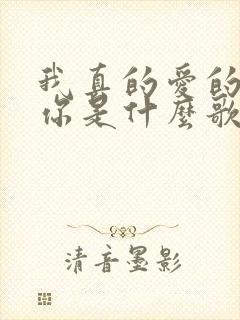 我真的愛的
你是什麼歌
清音墨影